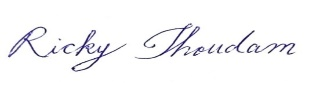 Ricky Thoudam